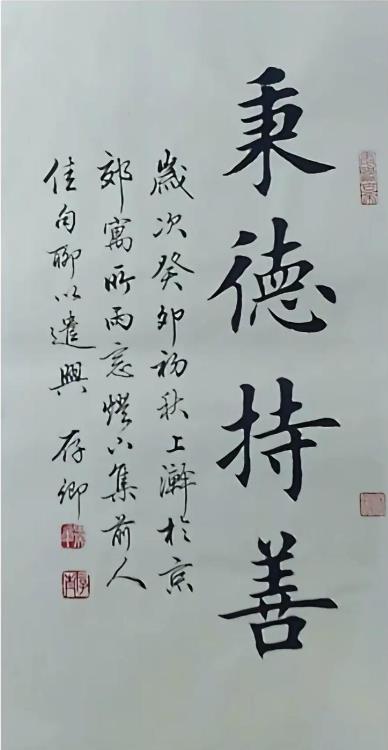 秉德持善
歲次癸卯初秋上澣於京
郊寓所雨窓燈下集前人
佳句聊以遣興 存卿